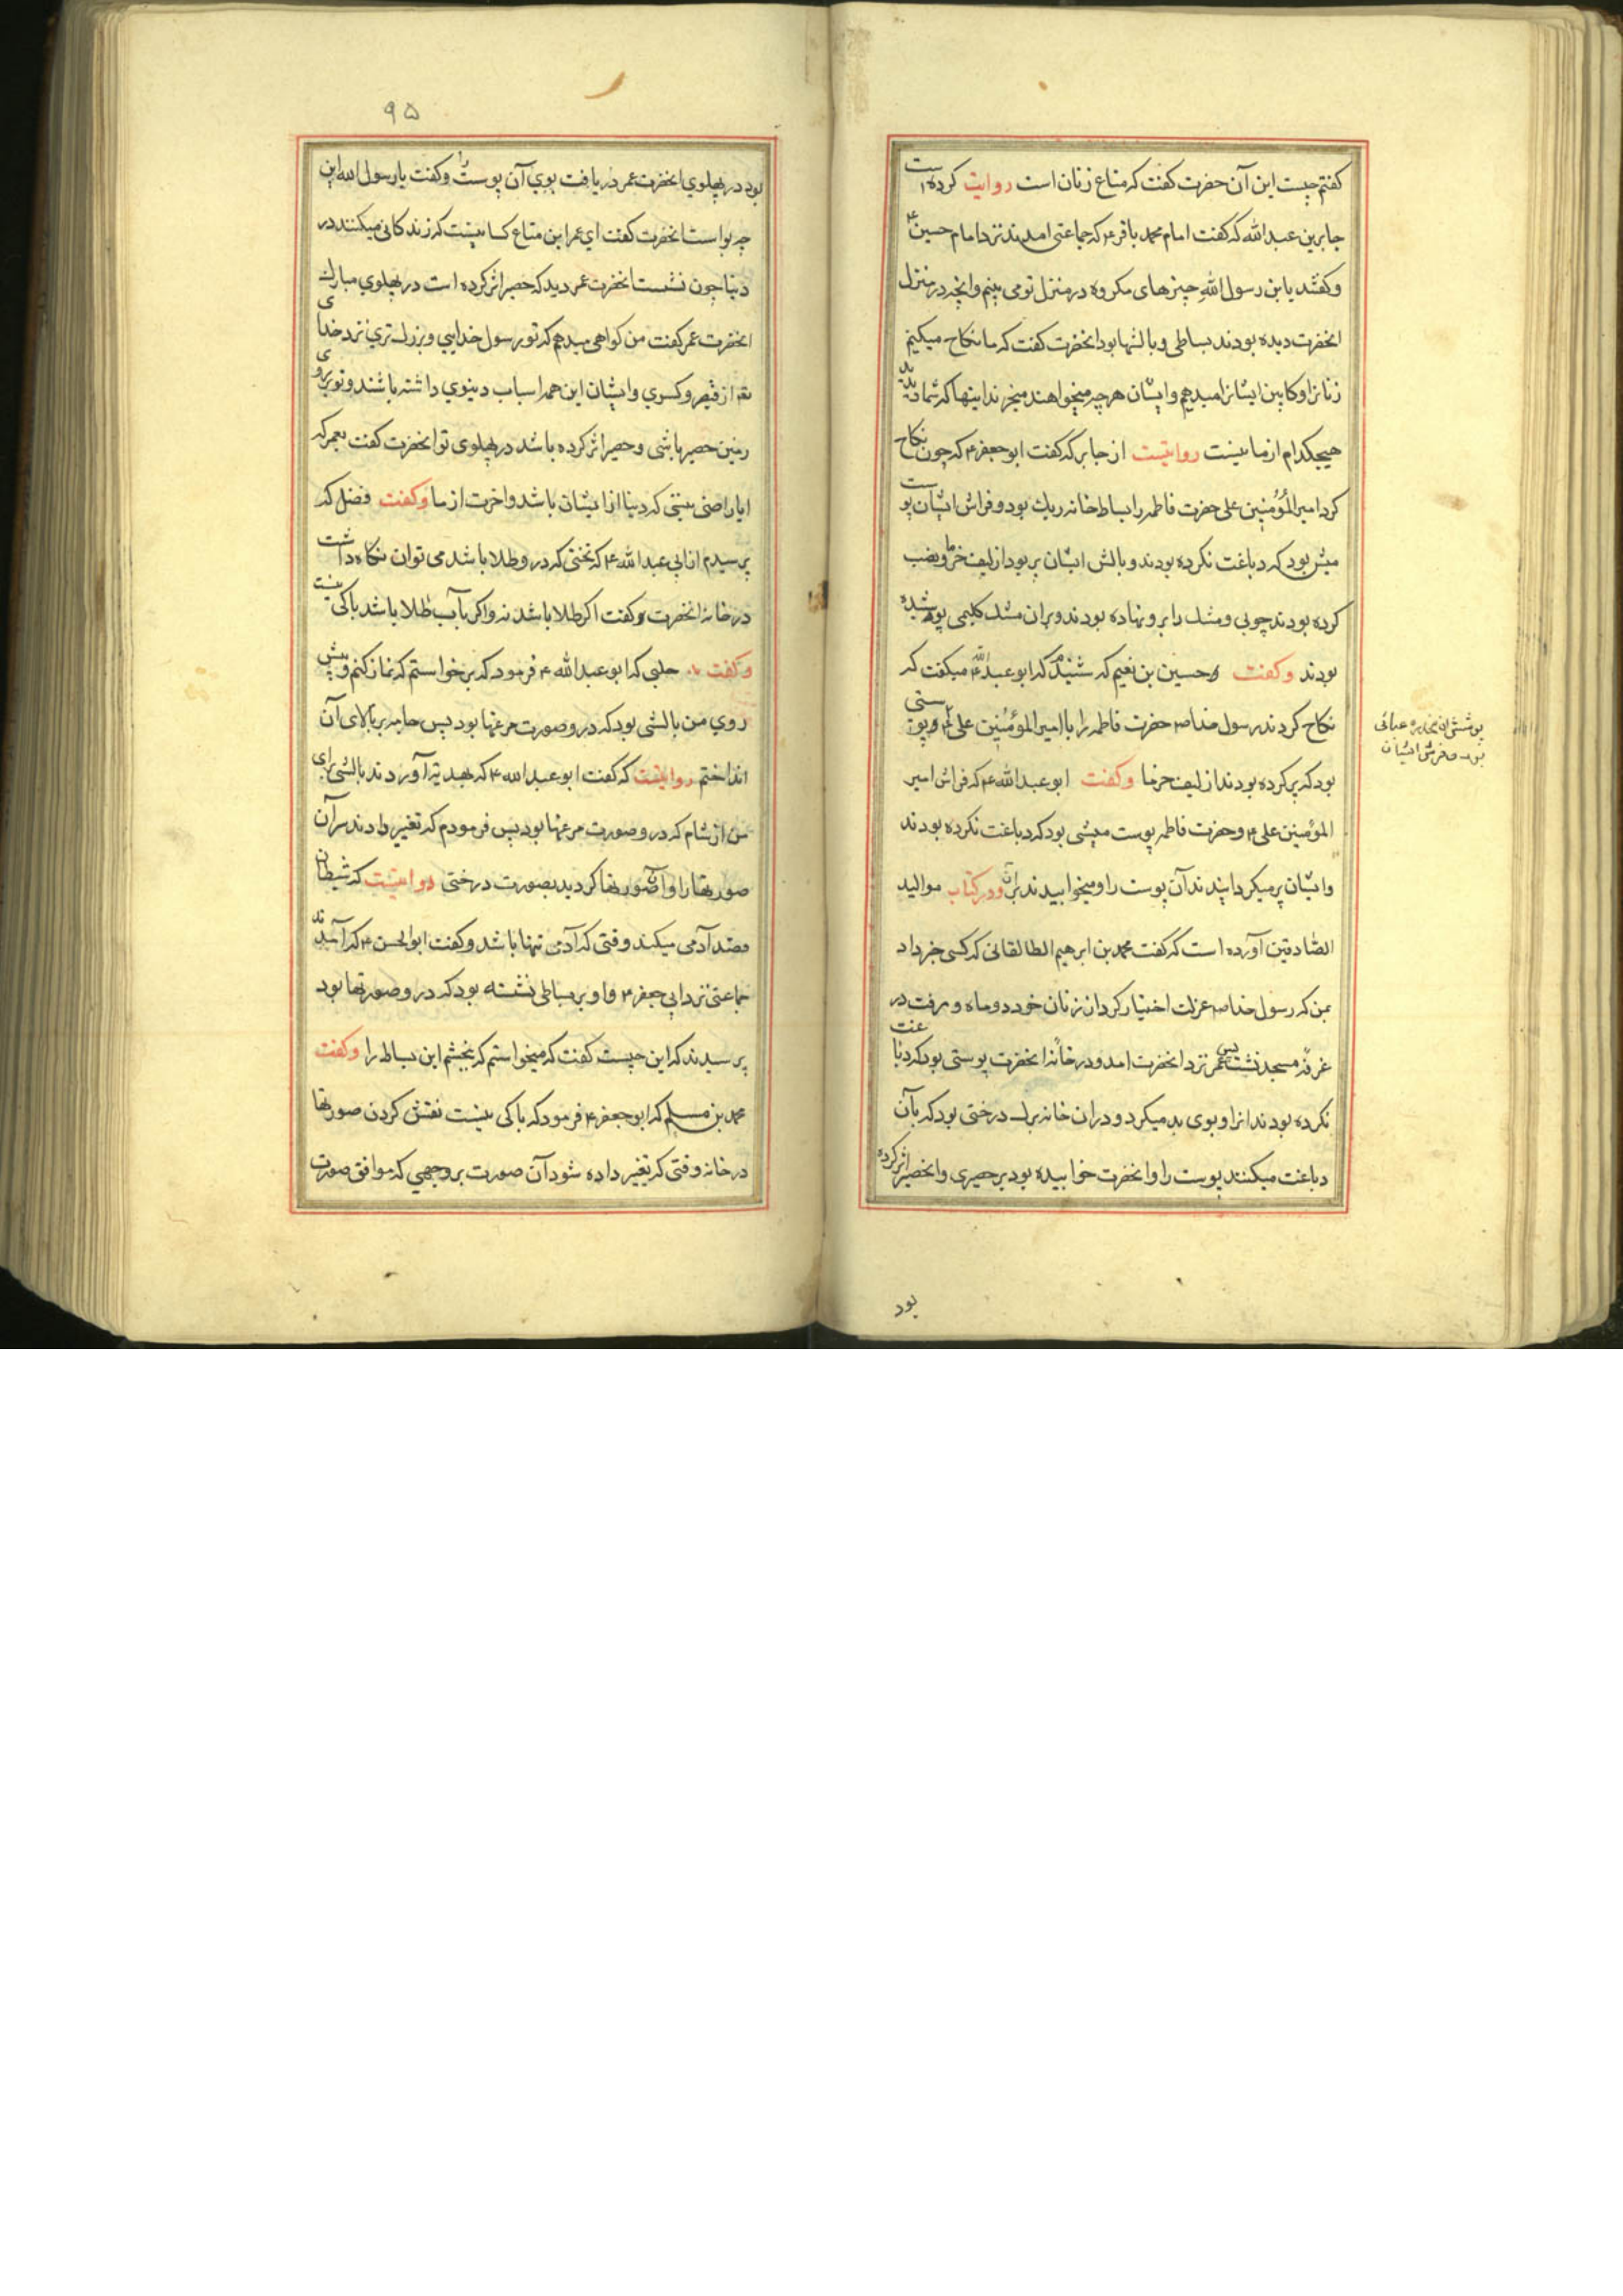 کفتم چیست این آن حضرت کفت که متاع زنان است روایت کرده است
جابر بن عبد الله که کفت امام محمد باقر ع که جماعتی امدند نزد امام حسین ع
وکفتند یا بن رسول الله چیزهای مکروه در منزل تو می بینم وانچه در منزل
انحضرت دیده بودند بساطی و بالشها بود انحضرت کفت که ما نکاح میکنیم
زنانرا و کابین ایشانرا میدهیم و ایشان هر چه میخواهند میخرند اینها که شما دیدید
هیچکدام از ما نیست روایتست از جابر که کفت ابو جعفر ع که چون نکاح
کرد امیر المؤمنین علی حضرت فاطمه را بساط خانه ریك بود و فراش ایشان پوست
میش بود که دباغت نکرده بودند و بالش ایشان پر بود از لیف خرما و نصب
کرده بودند چوبی و مشك را برو نهاده بودند و بران مشك کلیمی پوشیده
بودند وکفت حسین بن نعیم که شنیدم که ابو عبد الله ع میکفت که
نکاح کردند رسول خدا صم حضرت فاطمه را با امیر المؤمنین علی ع و پوستی
پوشش ان عبائی
بود و فرش ایشان
بود که پر کرده بودند از لیف خرما وکفت ابو عبد الله ع که فراش امیر
المؤمنین علی ع و حضرت فاطمه پوست میشی بود که دباغت نکرده بودند
وایشان پر میکردانیدند آن پوست را و میخوابیدند بران ودر کتاب موالید
الصادقین آورده است که کفت محمد بن ابرهیم الطالقانی که کسی خبر داد
بمن که رسول خدا صم عزلت اختیار کرد از زنان خود دو ماه و رفت در
غرفهٔ مسجد نشست پس عمر نزد انحضرت امد و در خانهٔ انحضرت پوستی بود که دباغت
نکرده بودند انرا و بوی بد میکرد و دران خانه برك درختی بود که بآن
دباغت میکنند پوست را و انحضرت خوابیده بود بر حصیری و انحصیر اثر کرده
بود
۹۵
بود در پهلوي انحضرت عمر دریافت بوي آن پوست را وکفت یا رسول الله این
چه بو است انحضرت کفت اي عمر این متاع کسانیست که زندکانی میکنند در
دنیا چون نشست انحضرت عمر دید که حصیر اثر کرده است در پهلوي مبارك
انحضرت عمر کفت من کواهی میدهم که تو رسول خدایي و بزرك تري نزد خدای
از قیصر و کسري و ایشان این همه اسباب دینوي داشته باشند و تو بر روی
زمین حصیر باشی و حصیر اثر کرده باشد در پهلوی تو انحضرت کفت بعمر که
ایا راضی نیستی که دنیا از ایشان باشد و اخرت از ما وکفت فضل که
پرسیدم از ابی عبد الله ع که تختی که درو طلا باشد می توان نکاه داشت
در خانه انحضرت کفت اکر طلا باشد نه و اکر بآب طلا باشد باکی نیست
وکفت حلبی که ابو عبد الله ع فرمود که برخواستم که نماز کنم و پیش
روي من بالشی بود که درو صورت مرغها بود پس جامه بر بالای آن
انداختم روایتست که کفت ابو عبد الله ع که بهدیه آوردند بالشی برای
من از شام که درو صورت مرغها بود پس فرمودم که تغییر دادند سر آن
صورتها را و آن صورتها کردید بصورت درختی روایتست که شیطان
قصد آدمی میکند وقتی که آدمی تنها باشد وکفت ابو الحسن ع که آمدند
جماعتی نزد ابي جعفر ع و او بر بساطی نشسته بود که درو صورتها بود
پرسیدند که این چیست کفت که میخواستم که بخشم این بساط را وکفت
محمد بن مسلم که ابو جعفر ع فرمود که باکی نیست نقش کردن صورتها
در خانه وقتی که تغییر داده شود آن صورت بر وجهي که موافق صورت